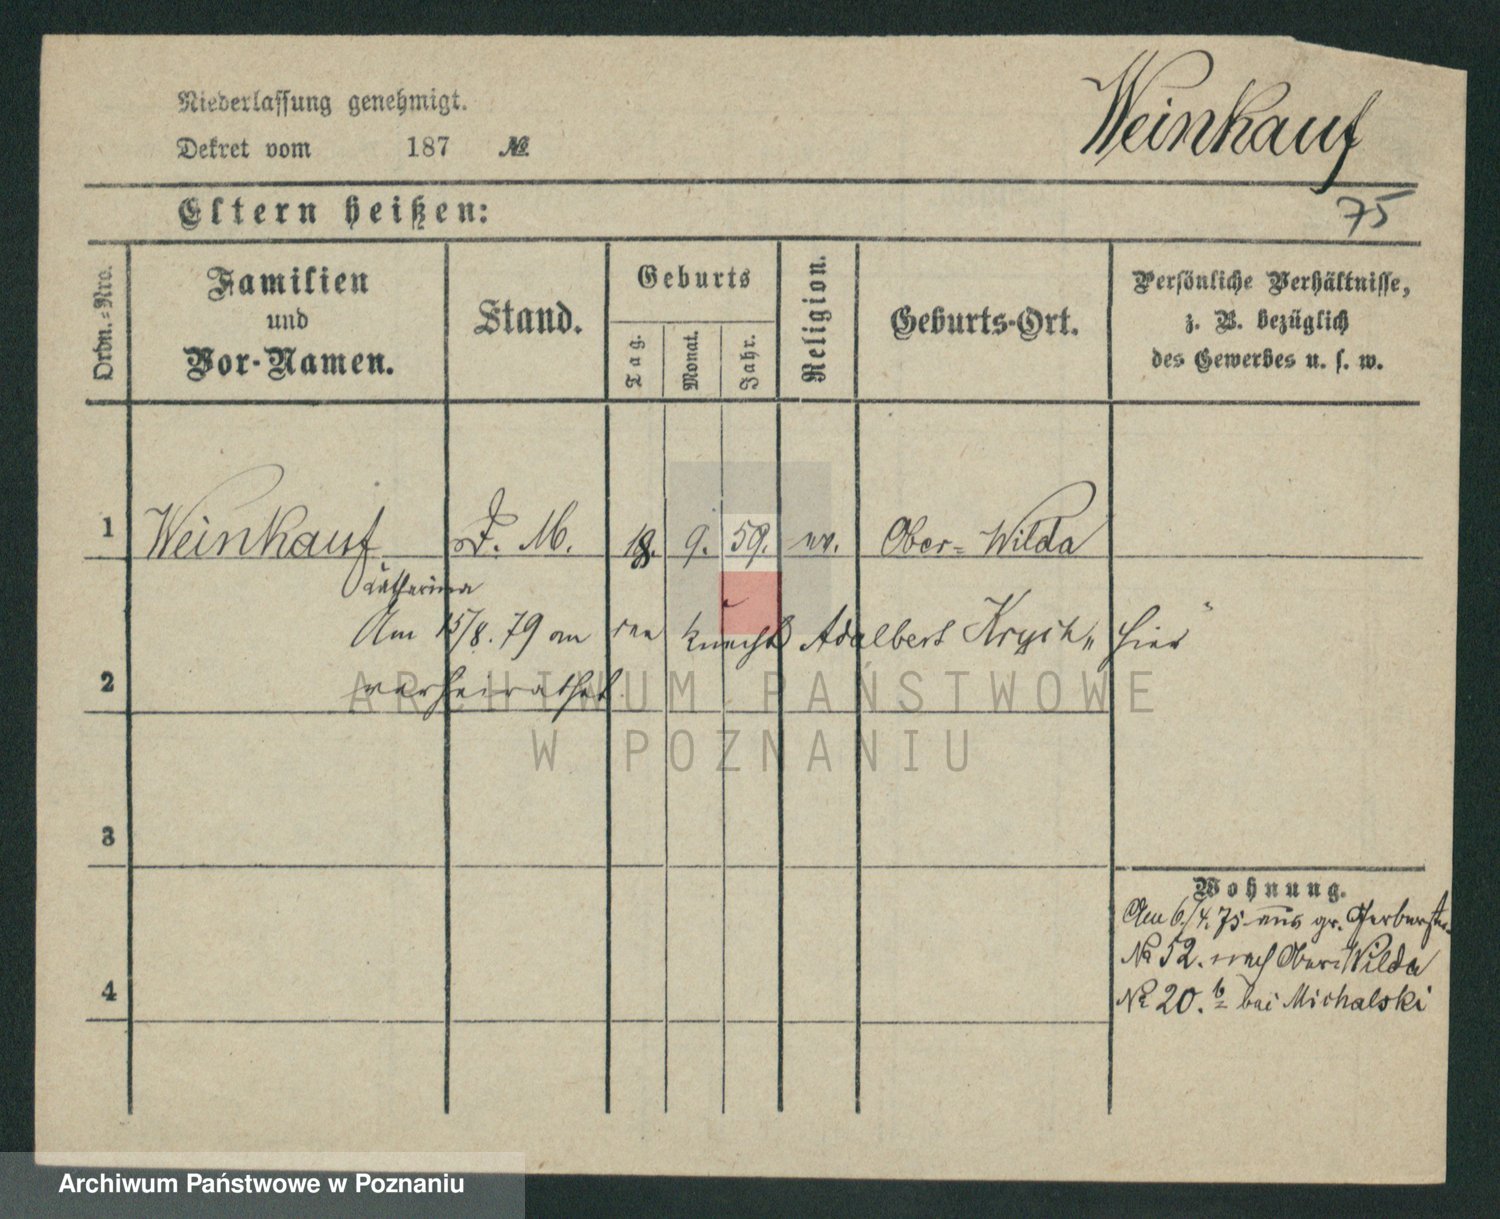 Niederlassung genehmigt.
Dekret vom 187 №
Weinkauf
75
Eltern heißen:
Ordn.-Nro.
Familien und Vor-Namen.
Stand.
Geburts
Tag.
Monat.
Jahr.
Religion.
Geburts-Ort.
Persönliche Verhältnisse,
z. B. bezüglich
des Gewerbes u. s. w.
1 Weinkauf D. M. 18. 9. 59. ev. Ober-Wilda
Katharina
Am 15/8. 79 an den Knecht Adalbert hier
2 verheirathet.
ARCHIWUM PAŃSTWOWE
W POZNANIU
3
Wohnung.
Am 6/4. 75 aus gr. Gerberstr.
№ 52. nach Ober-Wilda
4
№ 20. b bei Michalski
Archiwum Państwowe w Poznaniu